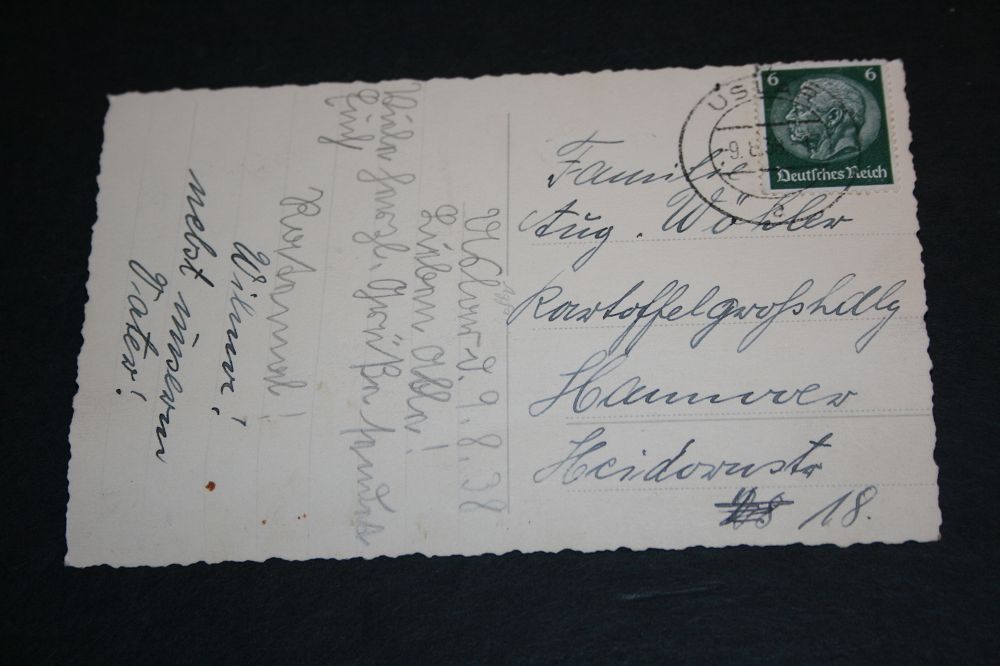 6 6
Deutsches Reich
USLAR
9.8.38
Familie
Aug. Wöhler
Kartoffelgroßhdlg
Hannover
Heidornstr
18.
Uslar d. 9.8.38
Lieben alle!
Viele herzl. Grüße sendet
Euch
Rosemarie!
Wilma!
nebst unserm
Vater!